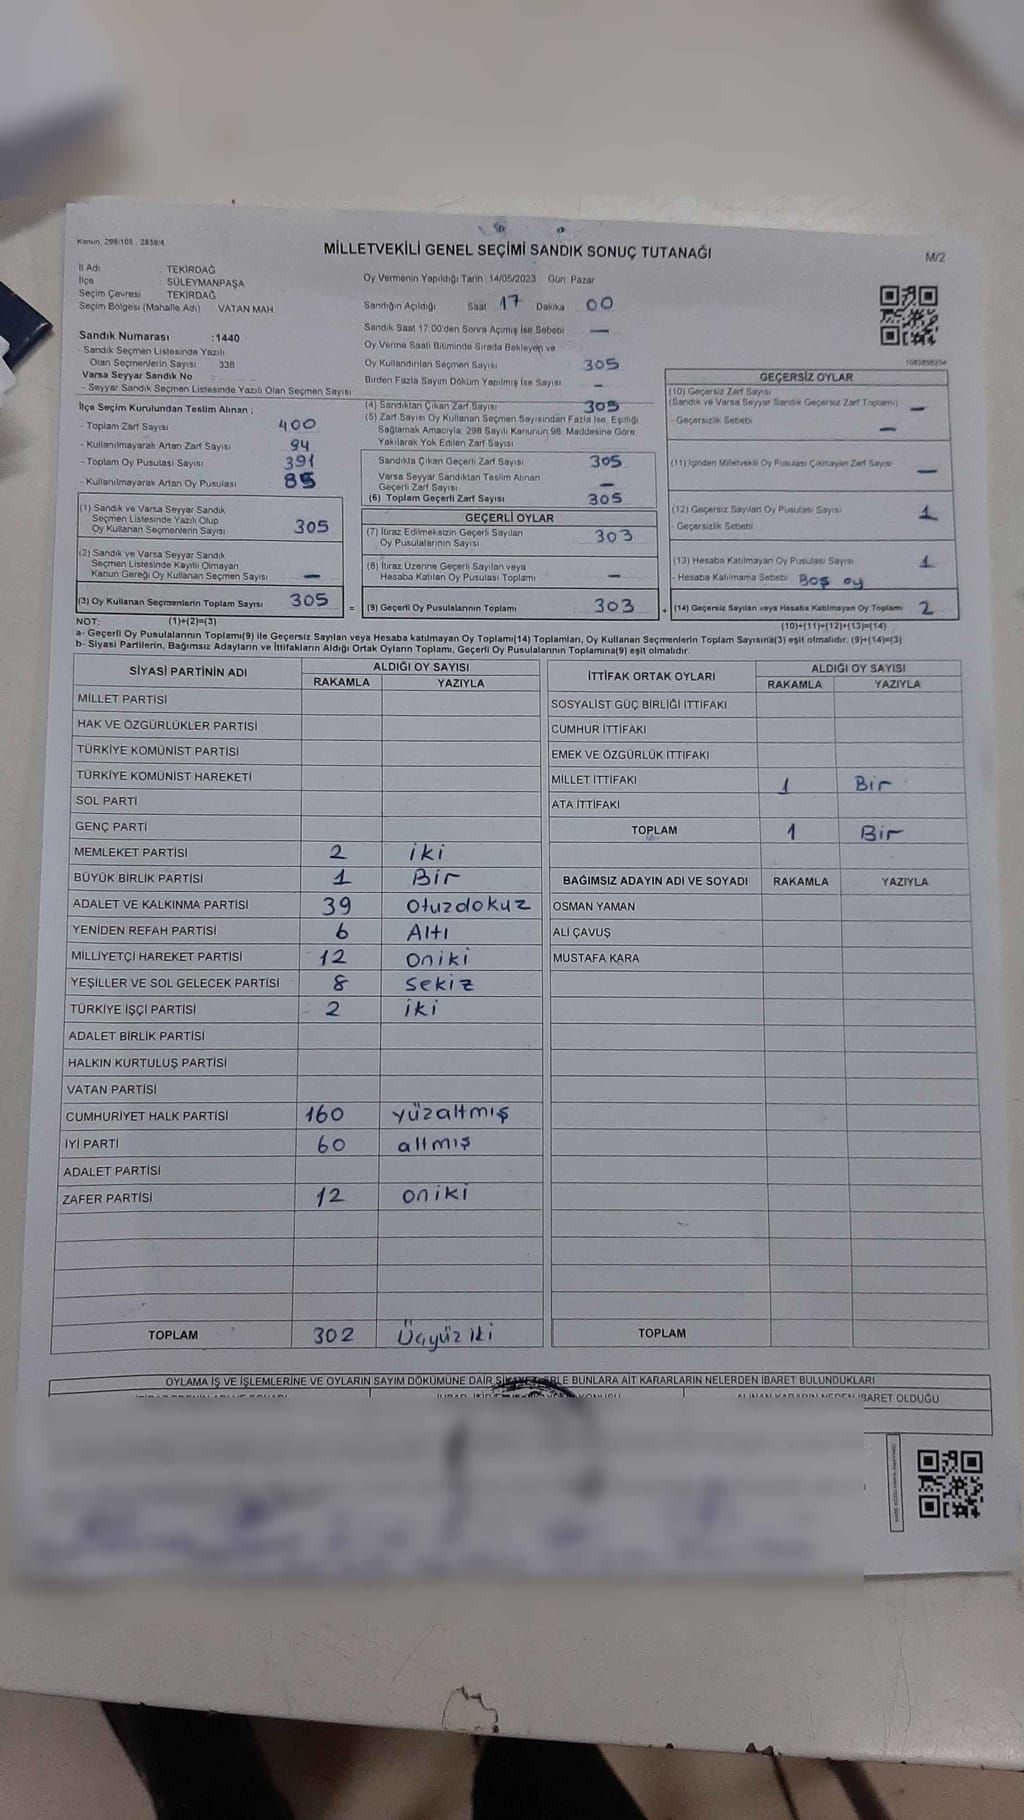 Kanun, 298/105 , 2839/4
MİLLETVEKİLİ GENEL SEÇİMİ SANDIK SONUÇ TUTANAĞI
M/2
İl Adı : TEKİRDAĞ
İlçe : SÜLEYMANPAŞA
Seçim Çevresi : TEKİRDAĞ
Seçim Bölgesi (Mahalle Adı) VATAN MAH
Sandık Numarası :1440
- Sandık Seçmen Listesinde Yazılı
Olan Seçmenlerin Sayısı : 338
Varsa Seyyar Sandık No :
- Seyyar Sandık Seçmen Listesinde Yazılı Olan Seçmen Sayısı
Oy Vermenin Yapıldığı Tarih : 14/05/2023 Gün: Pazar
Sandığın Açıldığı Saat 17 Dakika 00
Sandık Saat 17:00'den Sonra Açılmış İse Sebebi —
Oy Verme Saati Bitiminde Sırada Bekleyen ve
Oy Kullandırılan Seçmen Sayısı 305
Birden Fazla Sayım Döküm Yapılmış İse Sayısı –
İlçe Seçim Kurulundan Teslim Alınan ;
- Toplam Zarf Sayısı 400
- Kullanılmayarak Artan Zarf Sayısı 94
- Toplam Oy Pusulası Sayısı 391
- Kullanılmayarak Artan Oy Pusulası 85
(1) Sandık ve Varsa Seyyar Sandık
Seçmen Listesinde Yazılı Olup
Oy Kullanan Seçmenlerin Sayısı 305
(2) Sandık ve Varsa Seyyar Sandık
Seçmen Listesinde Kayıtlı Olmayan
Kanun Gereği Oy Kullanan Seçmen Sayısı —
(3) Oy Kullanan Seçmenlerin Toplam Sayısı 305
(4) Sandıktan Çıkan Zarf Sayısı 305
(5) Zarf Sayısı Oy Kullanan Seçmen Sayısından Fazla İse, Eşitliği
Sağlamak Amacıyla, 298 Sayılı Kanunun 98. Maddesine Göre
Yakılarak Yok Edilen Zarf Sayısı
Sandıkta Çıkan Geçerli Zarf Sayısı 305
Varsa Seyyar Sandıktan Teslim Alınan
Geçerli Zarf Sayısı –
(6) Toplam Geçerli Zarf Sayısı 305
GEÇERLİ OYLAR
(7) İtiraz Edilmeksizin Geçerli Sayılan
Oy Pusulalarının Sayısı 303
(8) İtiraz Üzerine Geçerli Sayılan veya
Hesaba Katılan Oy Pusulası Toplamı —
= (9) Geçerli Oy Pusulalarının Toplamı 303
GEÇERSİZ OYLAR
(10) Geçersiz Zarf Sayısı
(Sandık ve Varsa Seyyar Sandık Geçersiz Zarf Toplamı) —
- Geçersizlik Sebebi —
(11) İçinden Milletvekili Oy Pusulası Çıkmayan Zarf Sayısı —
(12) Geçersiz Sayılan Oy Pusulası Sayısı 1
- Geçersizlik Sebebi
(13) Hesaba Katılmayan Oy Pusulası Sayısı 1
- Hesaba Katılmama Sebebi Boş oy
+ (14) Geçersiz Sayılan veya Hesaba Katılmayan Oy Toplamı 2
NOT: (1)+(2)=(3)
(10)+(11)+(12)+(13)=(14)
a- Geçerli Oy Pusulalarının Toplamı(9) ile Geçersiz Sayılan veya Hesaba katılmayan Oy Toplamı(14) Toplamları, Oy Kullanan Seçmenlerin Toplam Sayısına(3) eşit olmalıdır. (9)+(14)=(3)
b- Siyasi Partilerin, Bağımsız Adayların ve İttifakların Aldığı Ortak Oyların Toplamı, Geçerli Oy Pusulalarının Toplamına(9) eşit olmalıdır.
SİYASİ PARTİNİN ADI ALDIĞI OY SAYISI
RAKAMLA YAZIYLA
MİLLET PARTİSİ
HAK VE ÖZGÜRLÜKLER PARTİSİ
TÜRKİYE KOMÜNİST PARTİSİ
TÜRKİYE KOMÜNİST HAREKETİ
SOL PARTİ
GENÇ PARTİ
MEMLEKET PARTİSİ 2 iki
BÜYÜK BİRLİK PARTİSİ 1 Bir
ADALET VE KALKINMA PARTİSİ 39 Otuzdokuz
YENİDEN REFAH PARTİSİ 6 Altı
MİLLİYETÇİ HAREKET PARTİSİ 12 oniki
YEŞİLLER VE SOL GELECEK PARTİSİ 8 sekiz
TÜRKİYE İŞÇİ PARTİSİ 2 iki
ADALET BİRLİK PARTİSİ
HALKIN KURTULUŞ PARTİSİ
VATAN PARTİSİ
CUMHURİYET HALK PARTİSİ 160 yüzaltmış
İYİ PARTİ 60 altmış
ADALET PARTİSİ
ZAFER PARTİSİ 12 oniki
TOPLAM 302 Üçyüz iki
İTTİFAK ORTAK OYLARI ALDIĞI OY SAYISI
RAKAMLA YAZIYLA
SOSYALİST GÜÇ BİRLİĞİ İTTİFAKI
CUMHUR İTTİFAKI
EMEK VE ÖZGÜRLÜK İTTİFAKI
MİLLET İTTİFAKI 1 Bir
ATA İTTİFAKI
TOPLAM 1 Bir
BAĞIMSIZ ADAYIN ADI VE SOYADI RAKAMLA YAZIYLA
OSMAN YAMAN
ALİ ÇAVUŞ
MUSTAFA KARA
TOPLAM
OYLAMA İŞ VE İŞLEMLERİNE VE OYLARIN SAYIM DÖKÜMÜNE DAİR ŞİKAYETLERLE BUNLARA AİT KARARLARIN NELERDEN İBARET BULUNDUKLARI
ALINAN KARARIN NEDEN İBARET OLDUĞU